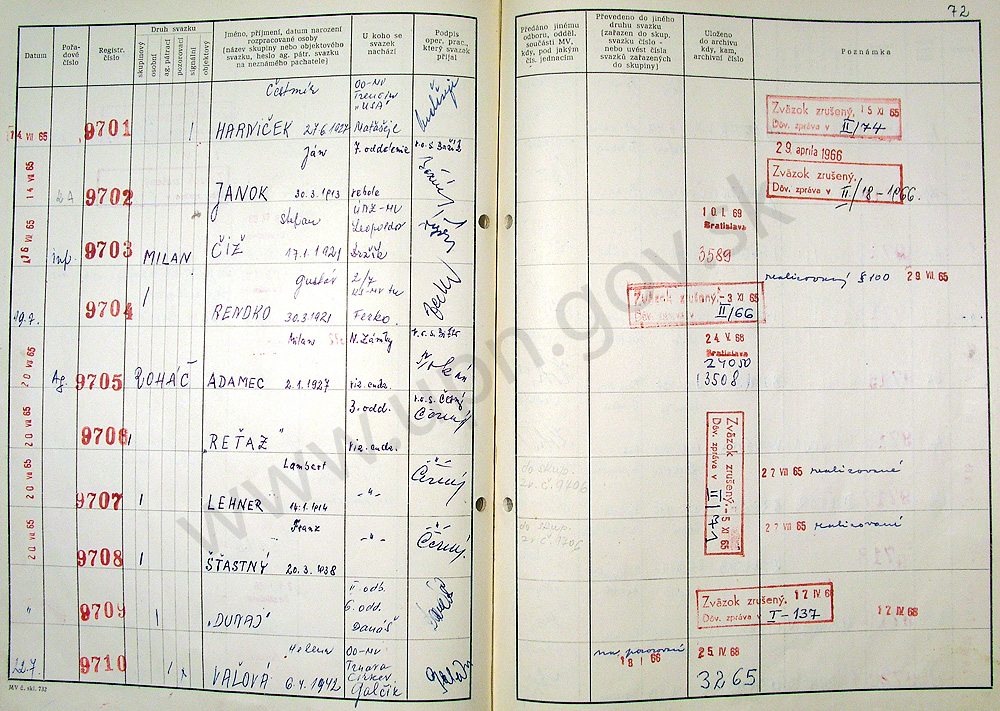 72
Datum
Pořadové číslo
Registr. číslo
Druh svazku
skupinový
osobní
ag. pátrací
pozorovací
signální
objektový
Jméno, příjmení, datum narození
rozpracované osoby
(název skupiny nebo objektového
svazku, heslo ag. pátr. svazku
na neznámého pachatele)
U koho se
svazek
nachází
Podpis
oper. prac.,
který svazek
přijal
Předáno jinému
odboru, odděl.
součásti MV,
kdy, pod jakým
čís. jednacím
Převedeno do jiného
druhu svazku
(zařazen do skup.
svazku číslo -
nebo uvést čísla
svazků zařazených
do skupiny)
Uloženo
do archivu
kdy, kam,
archivní číslo
Poznámka
Čestmír
OO-MV
Trenčín
"USA"
14 VII 65
9701
HARNIČEK 27.6.1927
Matášeje
Zväzok zrušený, 15 XI 65
Dôv. zpráva v II/74
Ján
7. oddelenie
29. apríla 1966
14 VII 65
9702
JANOK 30.3.1913
Zväzok zrušený,
Dôv. zpráva v II/18-1966.
Štefan
ÚNZ-MV
Leopoldov
10 I. 69
Bratislava
16 VII 65
Inf.
9703
MILAN
ČÍŽ 17.1.1921
3589
realizovaný § 100 29 VII. 65
Gustáv
2/7
19.7.
9704
RENDKO 30.3.1921
Ferko
Becky
Zväzok zrušený, -3 XI 65
Dôv. zpráva v II/66
Milan
N. Zámky
24 V. 68
Bratislava
24050
20 VII 65
Ag.
9705
ROHÁČ
ADAMEC 2.1.1927
viz. enda.
13508
3. odd.
r.o.s. Černý
Černý
20 VII 65
9706
"REŤAZ"
viz. enda.
Zväzok zrušený, -5 XI 65
Dôv. zpráva v II/71
Lambert
do skup.
zv. č. 9706
27 VII 65 realizované
20 VII 65
9707
LEHNER 14.1.1914
-"-
Černý
Franz
do skup.
zv. č. 9706
27 VII 65 realizovaní
20 VII 65
9708
ŠŤASTNÝ 20.3.1938
-"-
Černý
II odb.
6. odd.
Danáš
"
9709
"DUNAJ"
Zväzok zrušený, 17 IV 68
Dôv. zpráva v I-137
17 IV. 68
Helena
OO-MV
Trnava
Cirkev
Galčík
22.7.
9710
VAĽOVÁ 6.4.1942
na pozorovací
18 I 66
25 IV. 68
3265
MV č. skl. 732
www.upn.gov.sk